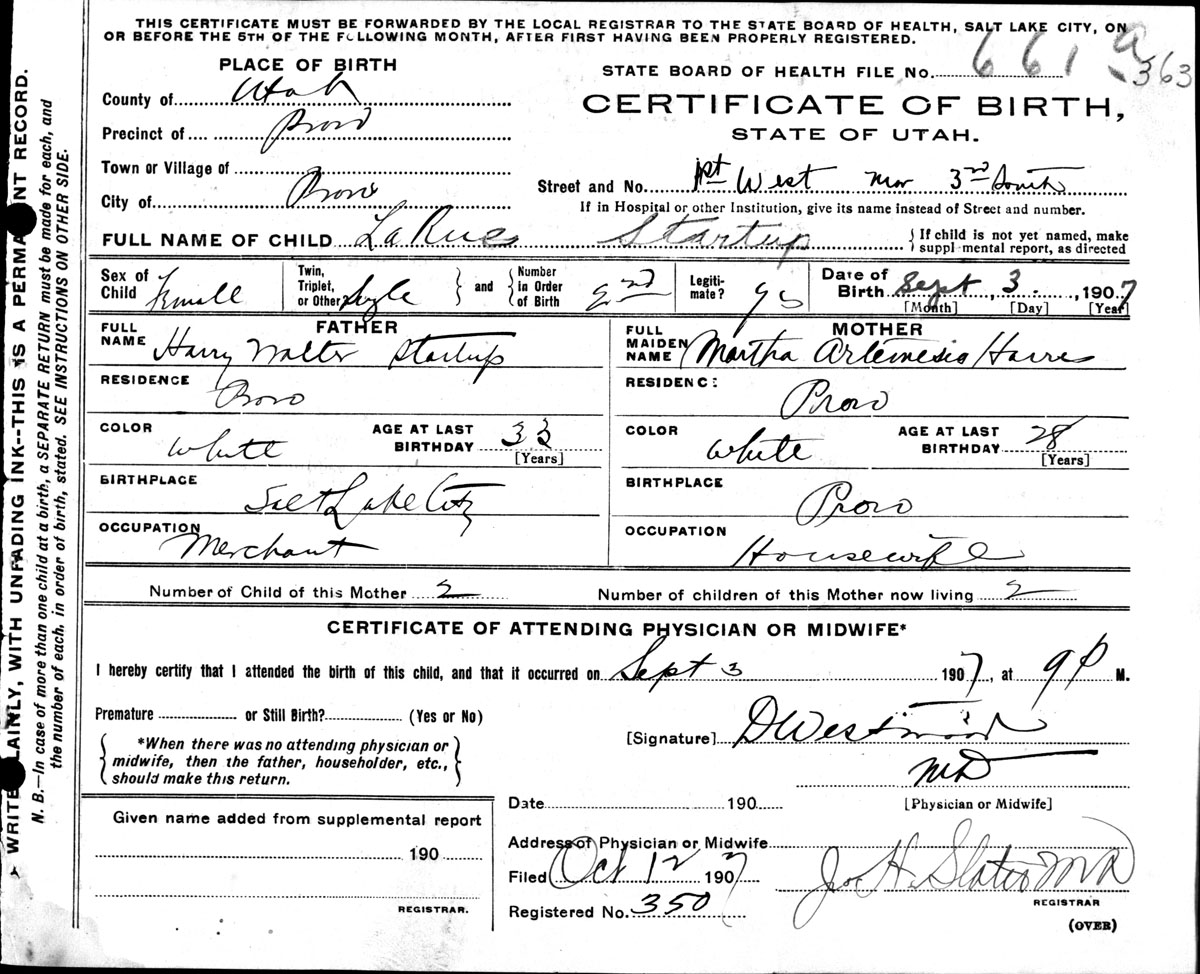 THIS CERTIFICATE MUST BE FORWARDED BY THE LOCAL REGISTRAR TO THE STATE BOARD OF HEALTH, SALT LAKE CITY, ON
OR BEFORE THE 5TH OF THE FOLLOWING MONTH, AFTER FIRST HAVING BEEN PROPERLY REGISTERED.
PLACE OF BIRTH
County of Utah
Precinct of Provo
Town or Village of
City of Provo
STATE BOARD OF HEALTH FILE No. 661 a 363
CERTIFICATE OF BIRTH,
STATE OF UTAH.
Street and No. 1st West 3rd South
If in Hospital or other Institution, give its name instead of Street and number.
FULL NAME OF CHILD LaRue Startup { If child is not yet named, make supplemental report, as directed
Sex of Child Female
Twin, Triplet, or Other Single } and { Number in Order of Birth 2nd
Legitimate? Yes
Date of Birth Sept 3, 1907
[Month] [Day] [Year]
FATHER
FULL NAME Harry Walter Startup
RESIDENCE Provo
COLOR White AGE AT LAST BIRTHDAY 33
[Years]
BIRTHPLACE Salt Lake City
OCCUPATION Merchant
MOTHER
FULL MAIDEN NAME Martha Artemesia
RESIDENCE Provo
COLOR White AGE AT LAST BIRTHDAY 28
[Years]
BIRTHPLACE Provo
OCCUPATION Housewife
Number of Child of this Mother 2 Number of children of this Mother now living 2
CERTIFICATE OF ATTENDING PHYSICIAN OR MIDWIFE*
I hereby certify that I attended the birth of this child, and that it occurred on Sept 3 1907, at 9 P M.
Premature or Still Birth? (Yes or No)
{ *When there was no attending physician or midwife, then the father, householder, etc., should make this return. }
[Signature] D Westwood
MD
[Physician or Midwife]
Date 190
Given name added from supplemental report
190
REGISTRAR.
Address of Physician or Midwife
Filed Oct 12 1907
Registered No. 350
H. Slater MD
REGISTRAR
(OVER)
WRITE PLAINLY, WITH UNFADING INK--THIS IS A PERMANENT RECORD.
N. B.—In case of more than one child at a birth, a SEPARATE RETURN must be made for each, and
the number of each, in order of birth, stated. SEE INSTRUCTIONS ON OTHER SIDE.